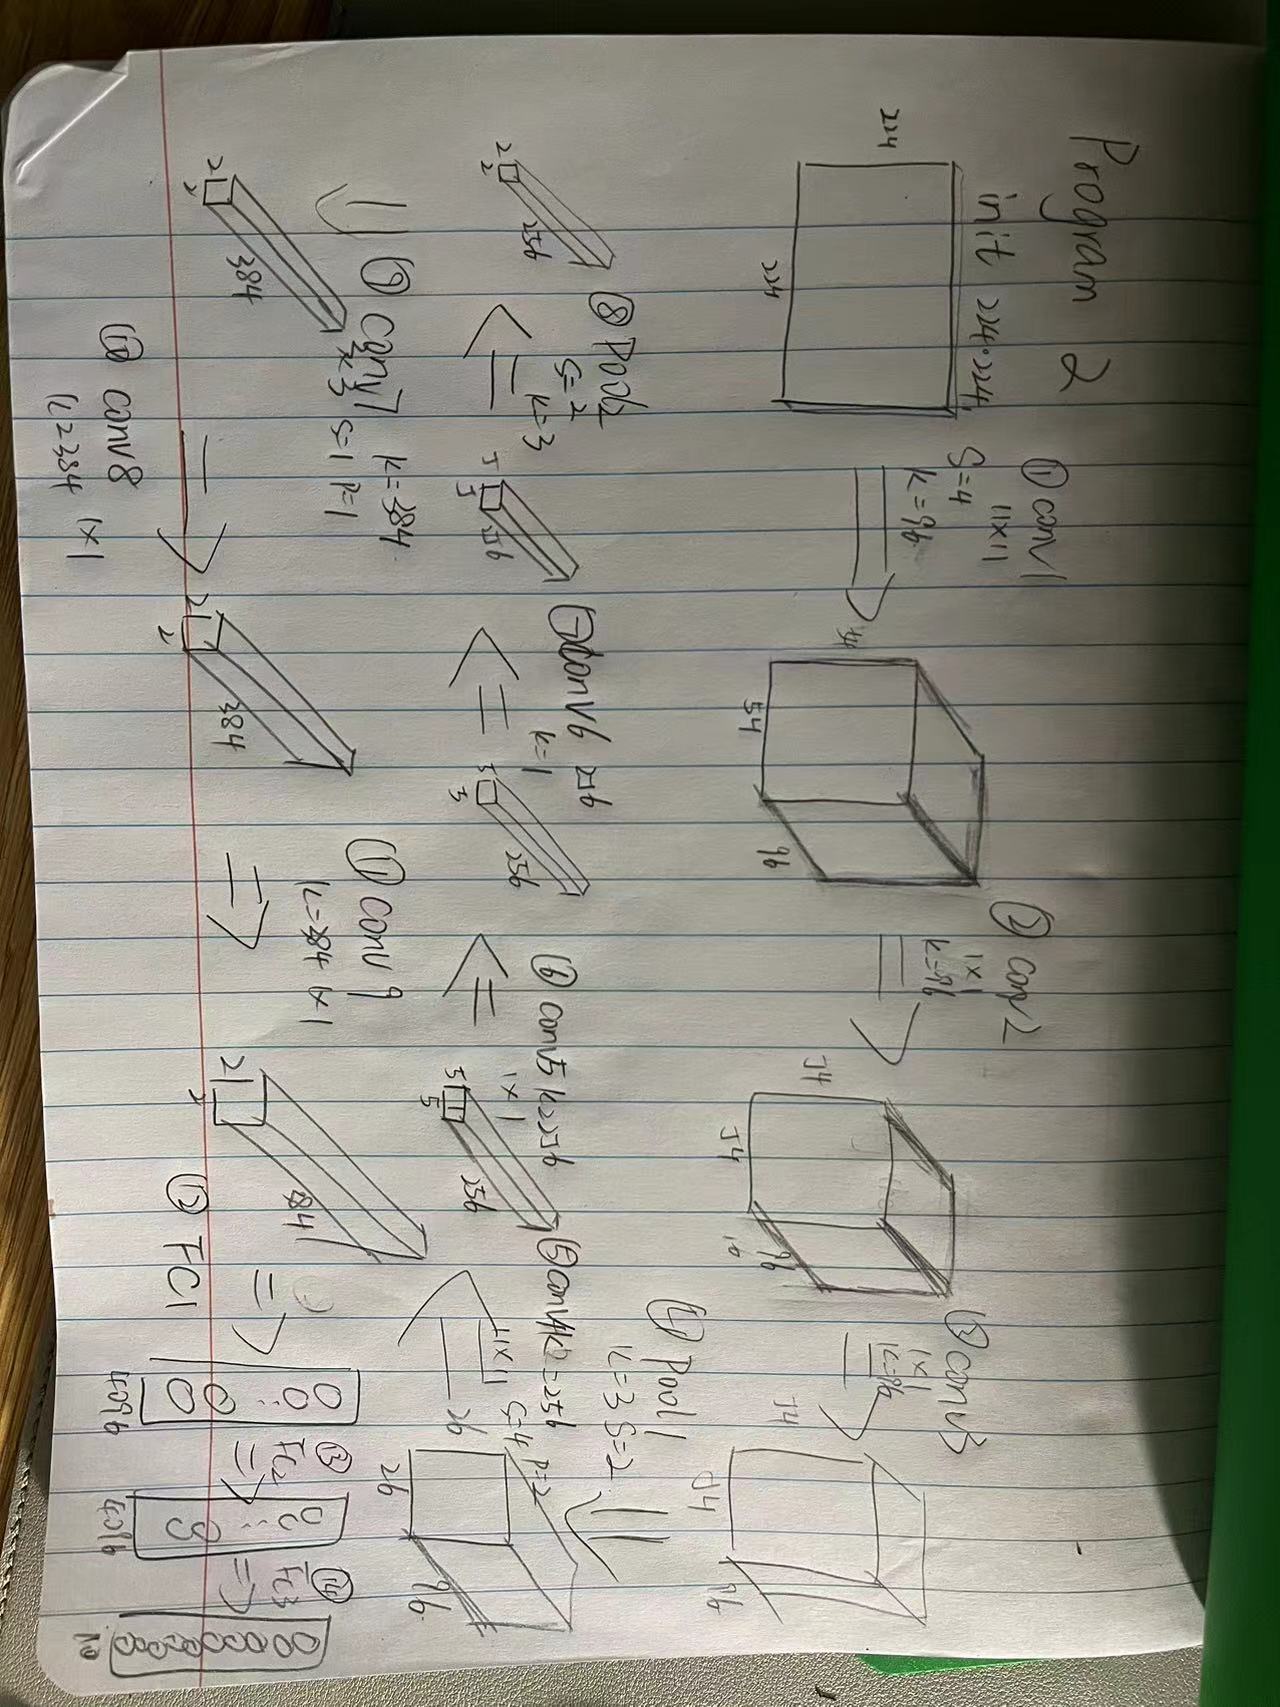 Program 2
init 224·224
224
224
① conv1
11×11
S=4
k=96
54
54
96
② conv2
1×1
k=96
54
54
96
③ conv3
1×1
k=96
54
54
96
④ Pool1
k=3 S=2
26
26
96
⑤ conv4 k=256
11×1 S=4 P=2
5
5
256
⑥ conv5 k=256
1×1
5
5
256
⑦ conv6 256
k=1
5
5
256
⑧ Pool2
S=2 k=3
2
2
256
⑨ conv7 k=384
3×3 S=1 P=1
2
2
384
⑩ conv8
k=384 1×1
2
2
384
⑪ conv9
k=384 1×1
2
2
384
⑫ FC1
4096
⑬
Fc2
4096
⑭
Fc3
10